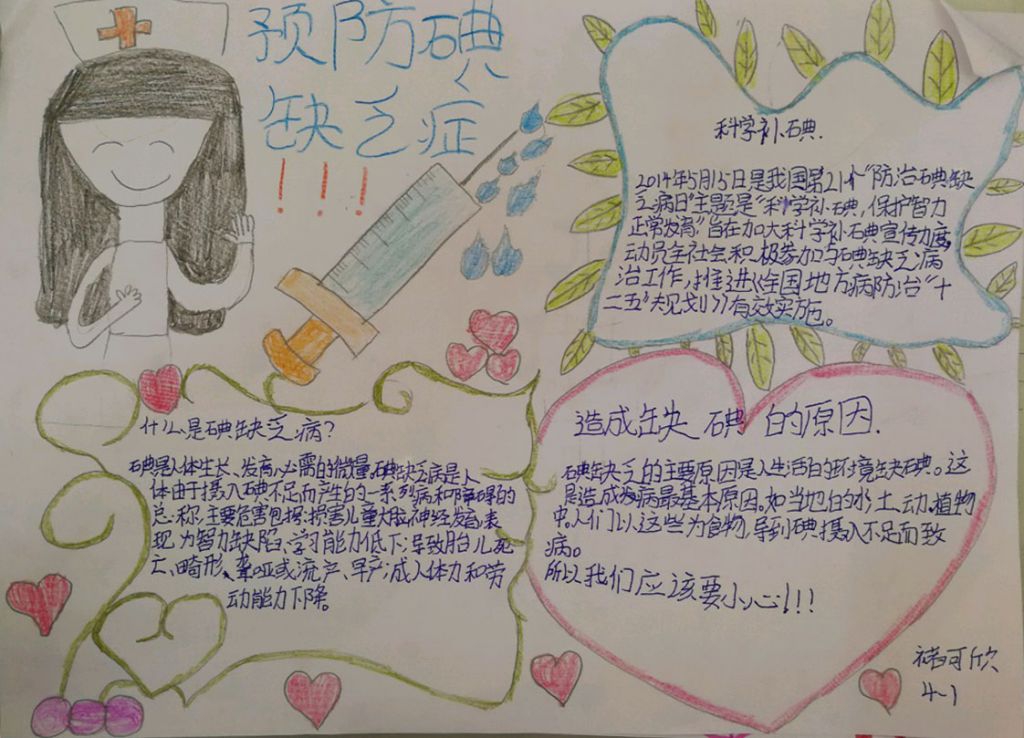 预防碘
缺乏症
!!!
科学补碘.
2014年5月15日是我国第21个“防治碘缺
乏病日”主题是“科学补碘,保护智力
正常发育”旨在加大科学补碘宣传力度,
动员全社会积极参加与碘缺乏病
治工作,推进《全国地方病防治“十
二五”规划》有效实施。
什么是碘缺乏病?
碘是人体生长、发育必需的微量,碘缺乏病是人
体由于摄入碘不足而产生的一系列病和障碍的
总称,主要危害包括:损害儿童大脑神经发育,表
现为智力缺陷、学习能力低下;导致胎儿死
亡、畸形、聋哑或流产、早产;成人体力和劳
动能力下降。
造成缺碘的原因.
碘缺乏的主要原因是人生活的环境缺碘。这
是造成疾病最基本原因。如当地的水、土、动、植物
中。人们以这些为食物,导到碘摄入不足而致
病。
所以我们应该要小心!!!
褚可欣
4-1